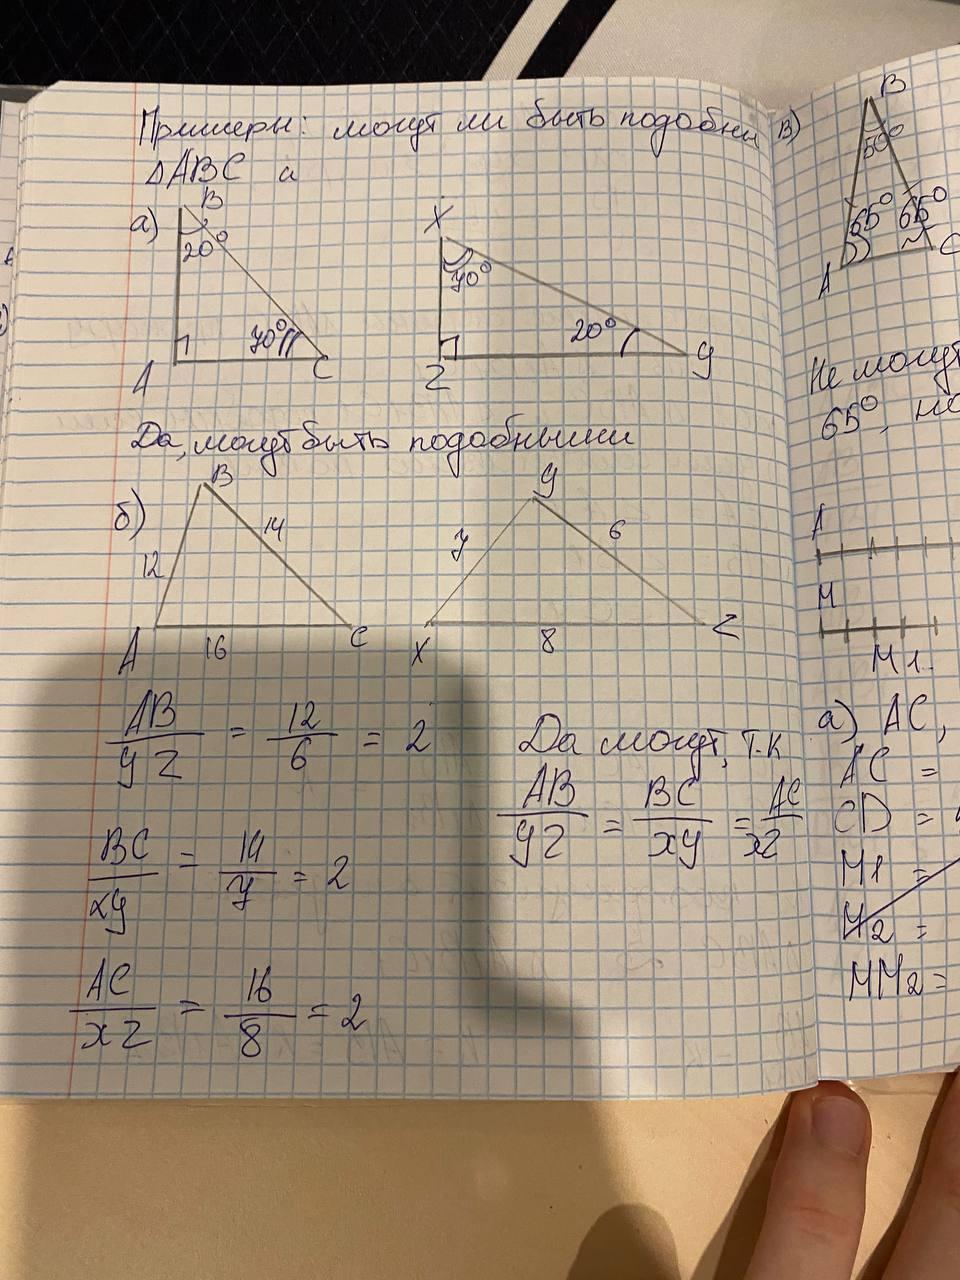 Примеры: могут ли быть подобны
ΔABC и
а)
B
20°
70°
A
C
X
70°
20°
Z
y
Да, могут быть подобными
б)
B
12
14
A
16
C
y
7
6
X
8
Z
AB/yz = 12/6 = 2
BC/xy = 14/7 = 2
AC/xz = 16/8 = 2
Да могут, т.к
AB/yz = BC/xy = AC/xz
в)
B
50°
65°
65°
A
C
Не могут
65°, но
A
M
M1
а) AC,
AC =
CD =
M1 =
M2 =
MM2 =